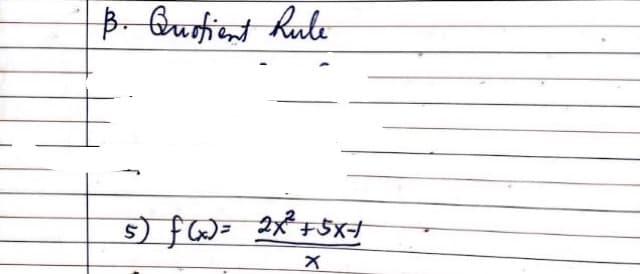 B. Quotient Rule
5) f(x)= 2x²+5x-1
x